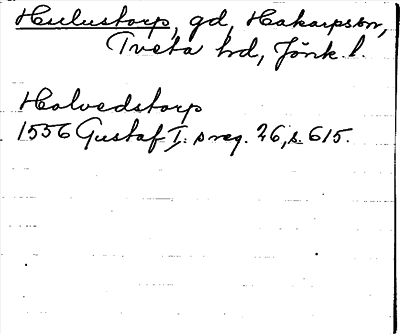 Hulustorp, gd, Hakarpssn,
Tveta hd, Jönk. l.
Holvedstorp
1556 Gustaf I:s reg. 26, s. 615.